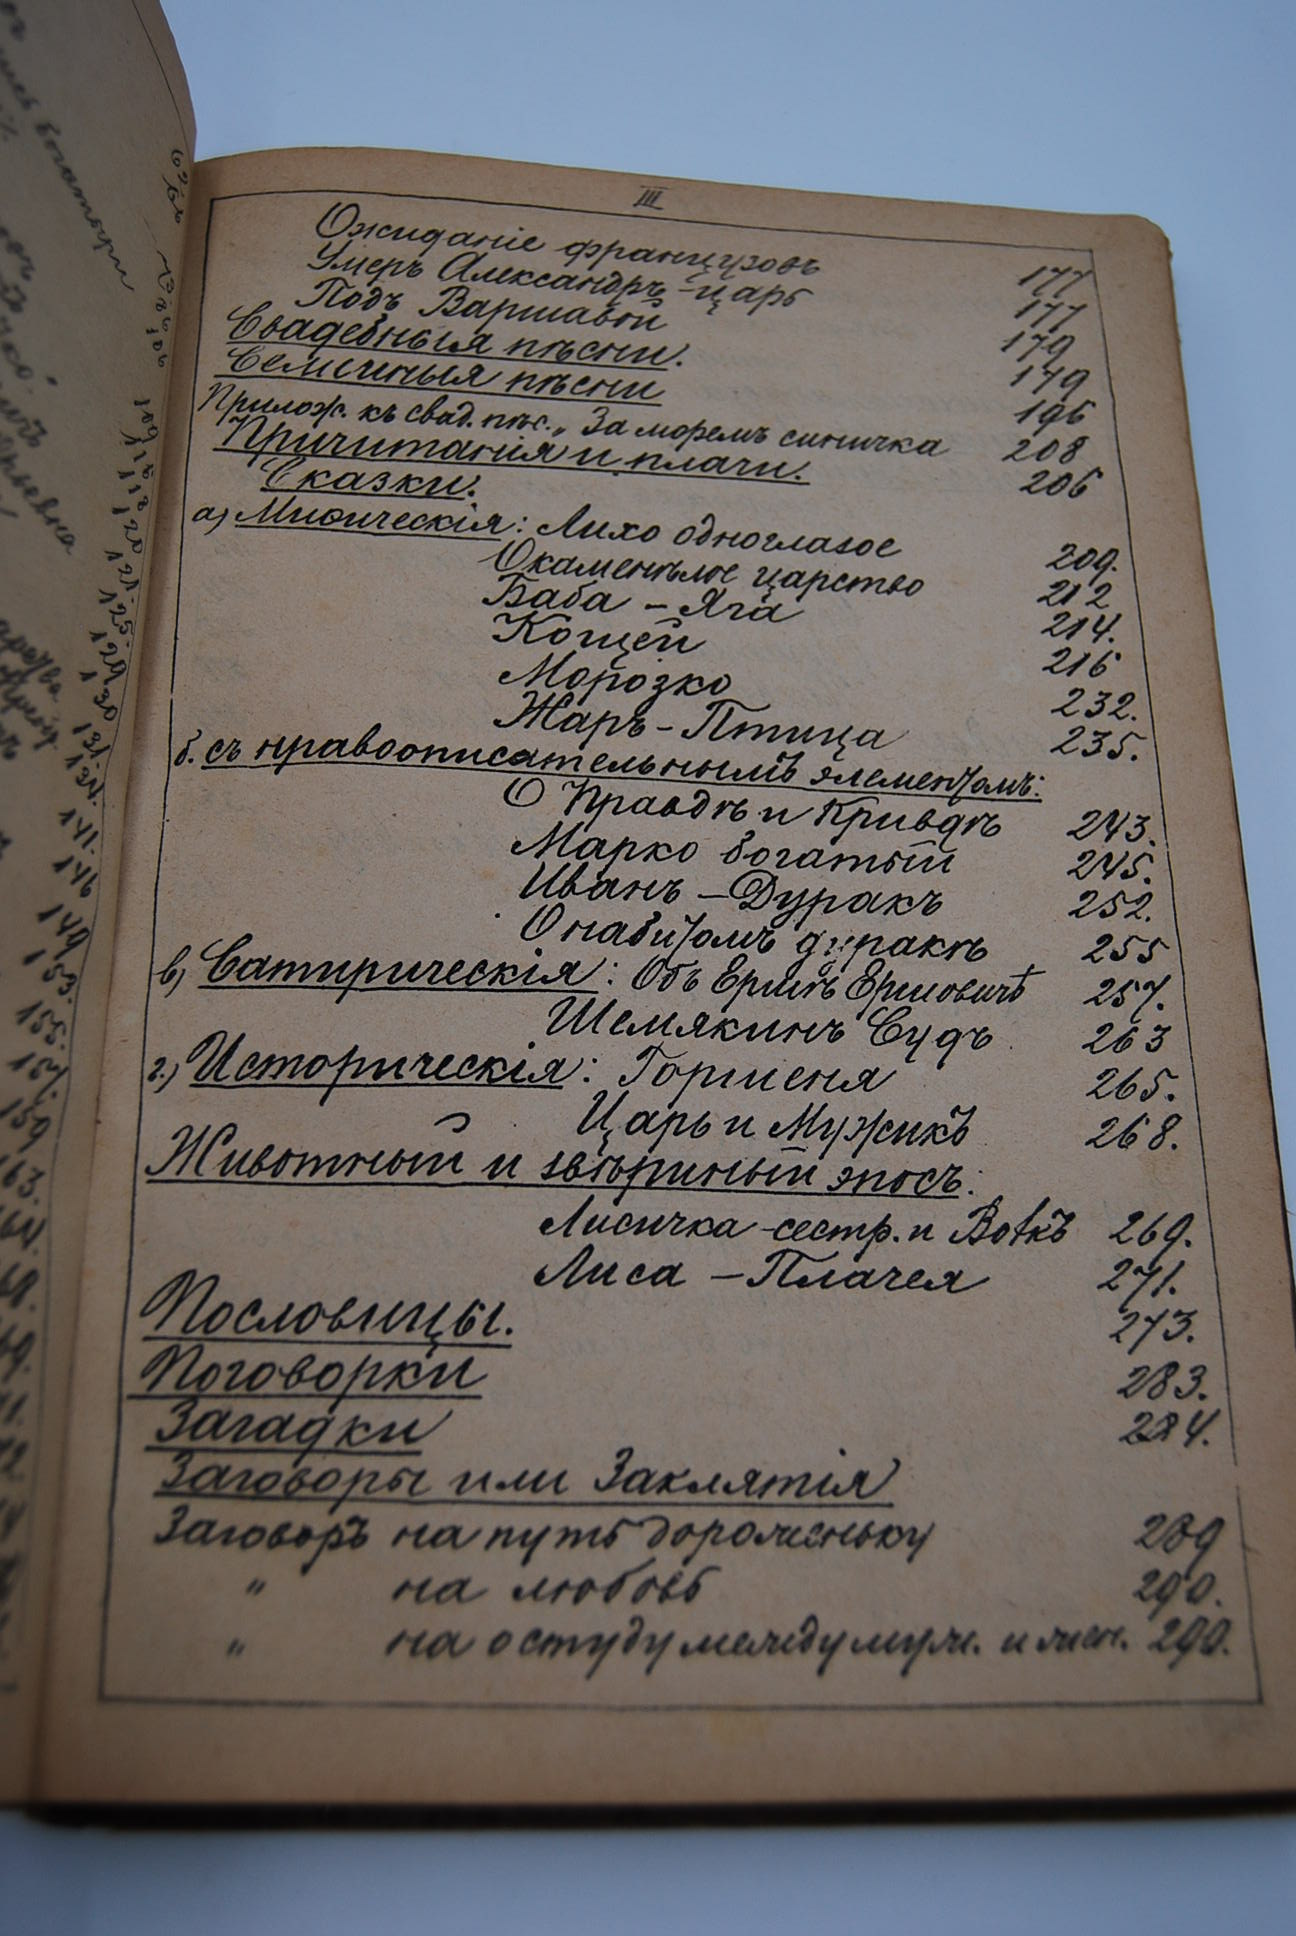 III
Ожиданіе французовъ 177
Умеръ Александръ-царь 177
Подъ Варшавой 179
Свадебныя пѣсни. 179
Семичныя пѣсни 196
Прилож. къ свад. пѣс. „За моремъ синичка 208
Причитанія и плачи. 206
Сказки.
а) Миѳическія: Лихо одноглазое 209.
Окаменѣлое царство 212
Баба-Яга 214.
Кощей 216
Морозко 232.
Жаръ-Птица 235.
б. съ нравоописательнымъ элементомъ:
О Правдѣ и Кривдѣ 243.
Марко богатый 245.
Иванъ-Дуракъ 252.
О набитомъ дуракѣ 255
в) Сатирическія: Объ Ершѣ Ершовичѣ 257.
Шемякинъ Судъ 263
г.) Историческія: Горшеня 265.
Царь и Мужикъ 268.
Животный и звѣриный эпосъ:
Лисичка-сестр. и Волкъ 269.
Лиса-Плачея 271.
Пословицы. 273.
Поговорки 283.
Загадки 284.
Заговоры или Заклятія
Заговоръ на путь дороженьку 289
„ на любовь 290.
„ на остуду между муж. и жен. 290.